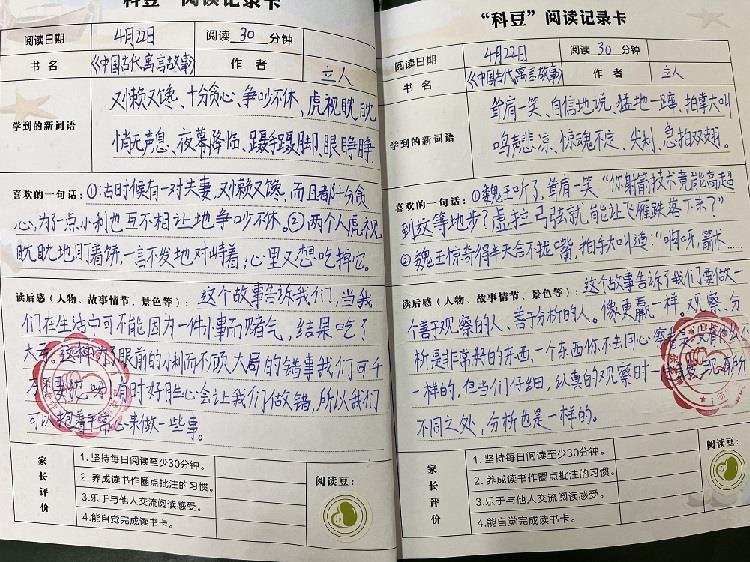 科豆”阅读记录卡
阅读日期 4月22日 阅读 30 分钟
书名 《中国古代寓言故事》 作者 立人
学到的新词语
又懒又馋、十分贪心、争吵不休、虎视眈眈
悄无声息、夜幕降临、蹑手蹑脚、眼睁睁
喜欢的一句话：①古时候有一对夫妻，又懒又馋，而且都十分贪
心，为了一点小利也互不相让地争吵不休。②两个人虎视
眈眈地盯着饼，一言不发地对峙着，心里又想吃掉它。
读后感（人物、故事情节、景色等）：这个故事告诉我们，当我
们在生活中可不能因为一件小事而赌气，结果吃了
大亏，这种为了眼前的小利而不顾大局的错事我们可千
万不要犯，有时好胜心会让我们做错，所以我们
可以抱着平常心来做一些事。
家长评价
1.坚持每日阅读至少30分钟。
2.养成读书作圈点批注的习惯。
3.乐于与他人交流阅读感受。
4.能自觉完成读书卡。
阅读豆：
“科豆”阅读记录卡
阅读日期 4月22日 阅读 30 分钟
书名 《中国古代寓言故事》 作者 立人
学到的新词语
耸肩一笑、自信地说、猛地一颤、拍掌大叫
鸣声悲凉、惊魂不定、尖利、急拍双翅。
喜欢的一句话：①魏王听了，耸肩一笑“你射箭技术竟能高超
到这等地步？虚拉弓弦就能让飞雁跌落下来？”
②魏王惊奇得半天合不拢嘴，拍手大叫道：“啊呀，箭术……
读后感（人物、故事情节、景色等）：这个故事告诉了我们要做一
个善于观察的人、善于分析的人。像更羸一样。观察、分
析是非常好的东西，一个东西你不去同心
一样的，但当们仔细，认真的观察时一
不同之处，分析也是一样的。
家长评价
1.坚持每日阅读至少30分钟。
2.养成读书作圈点批注的习惯。
3.乐于与他人交流阅读感受。
4.能自觉完成读书卡。
阅读豆：